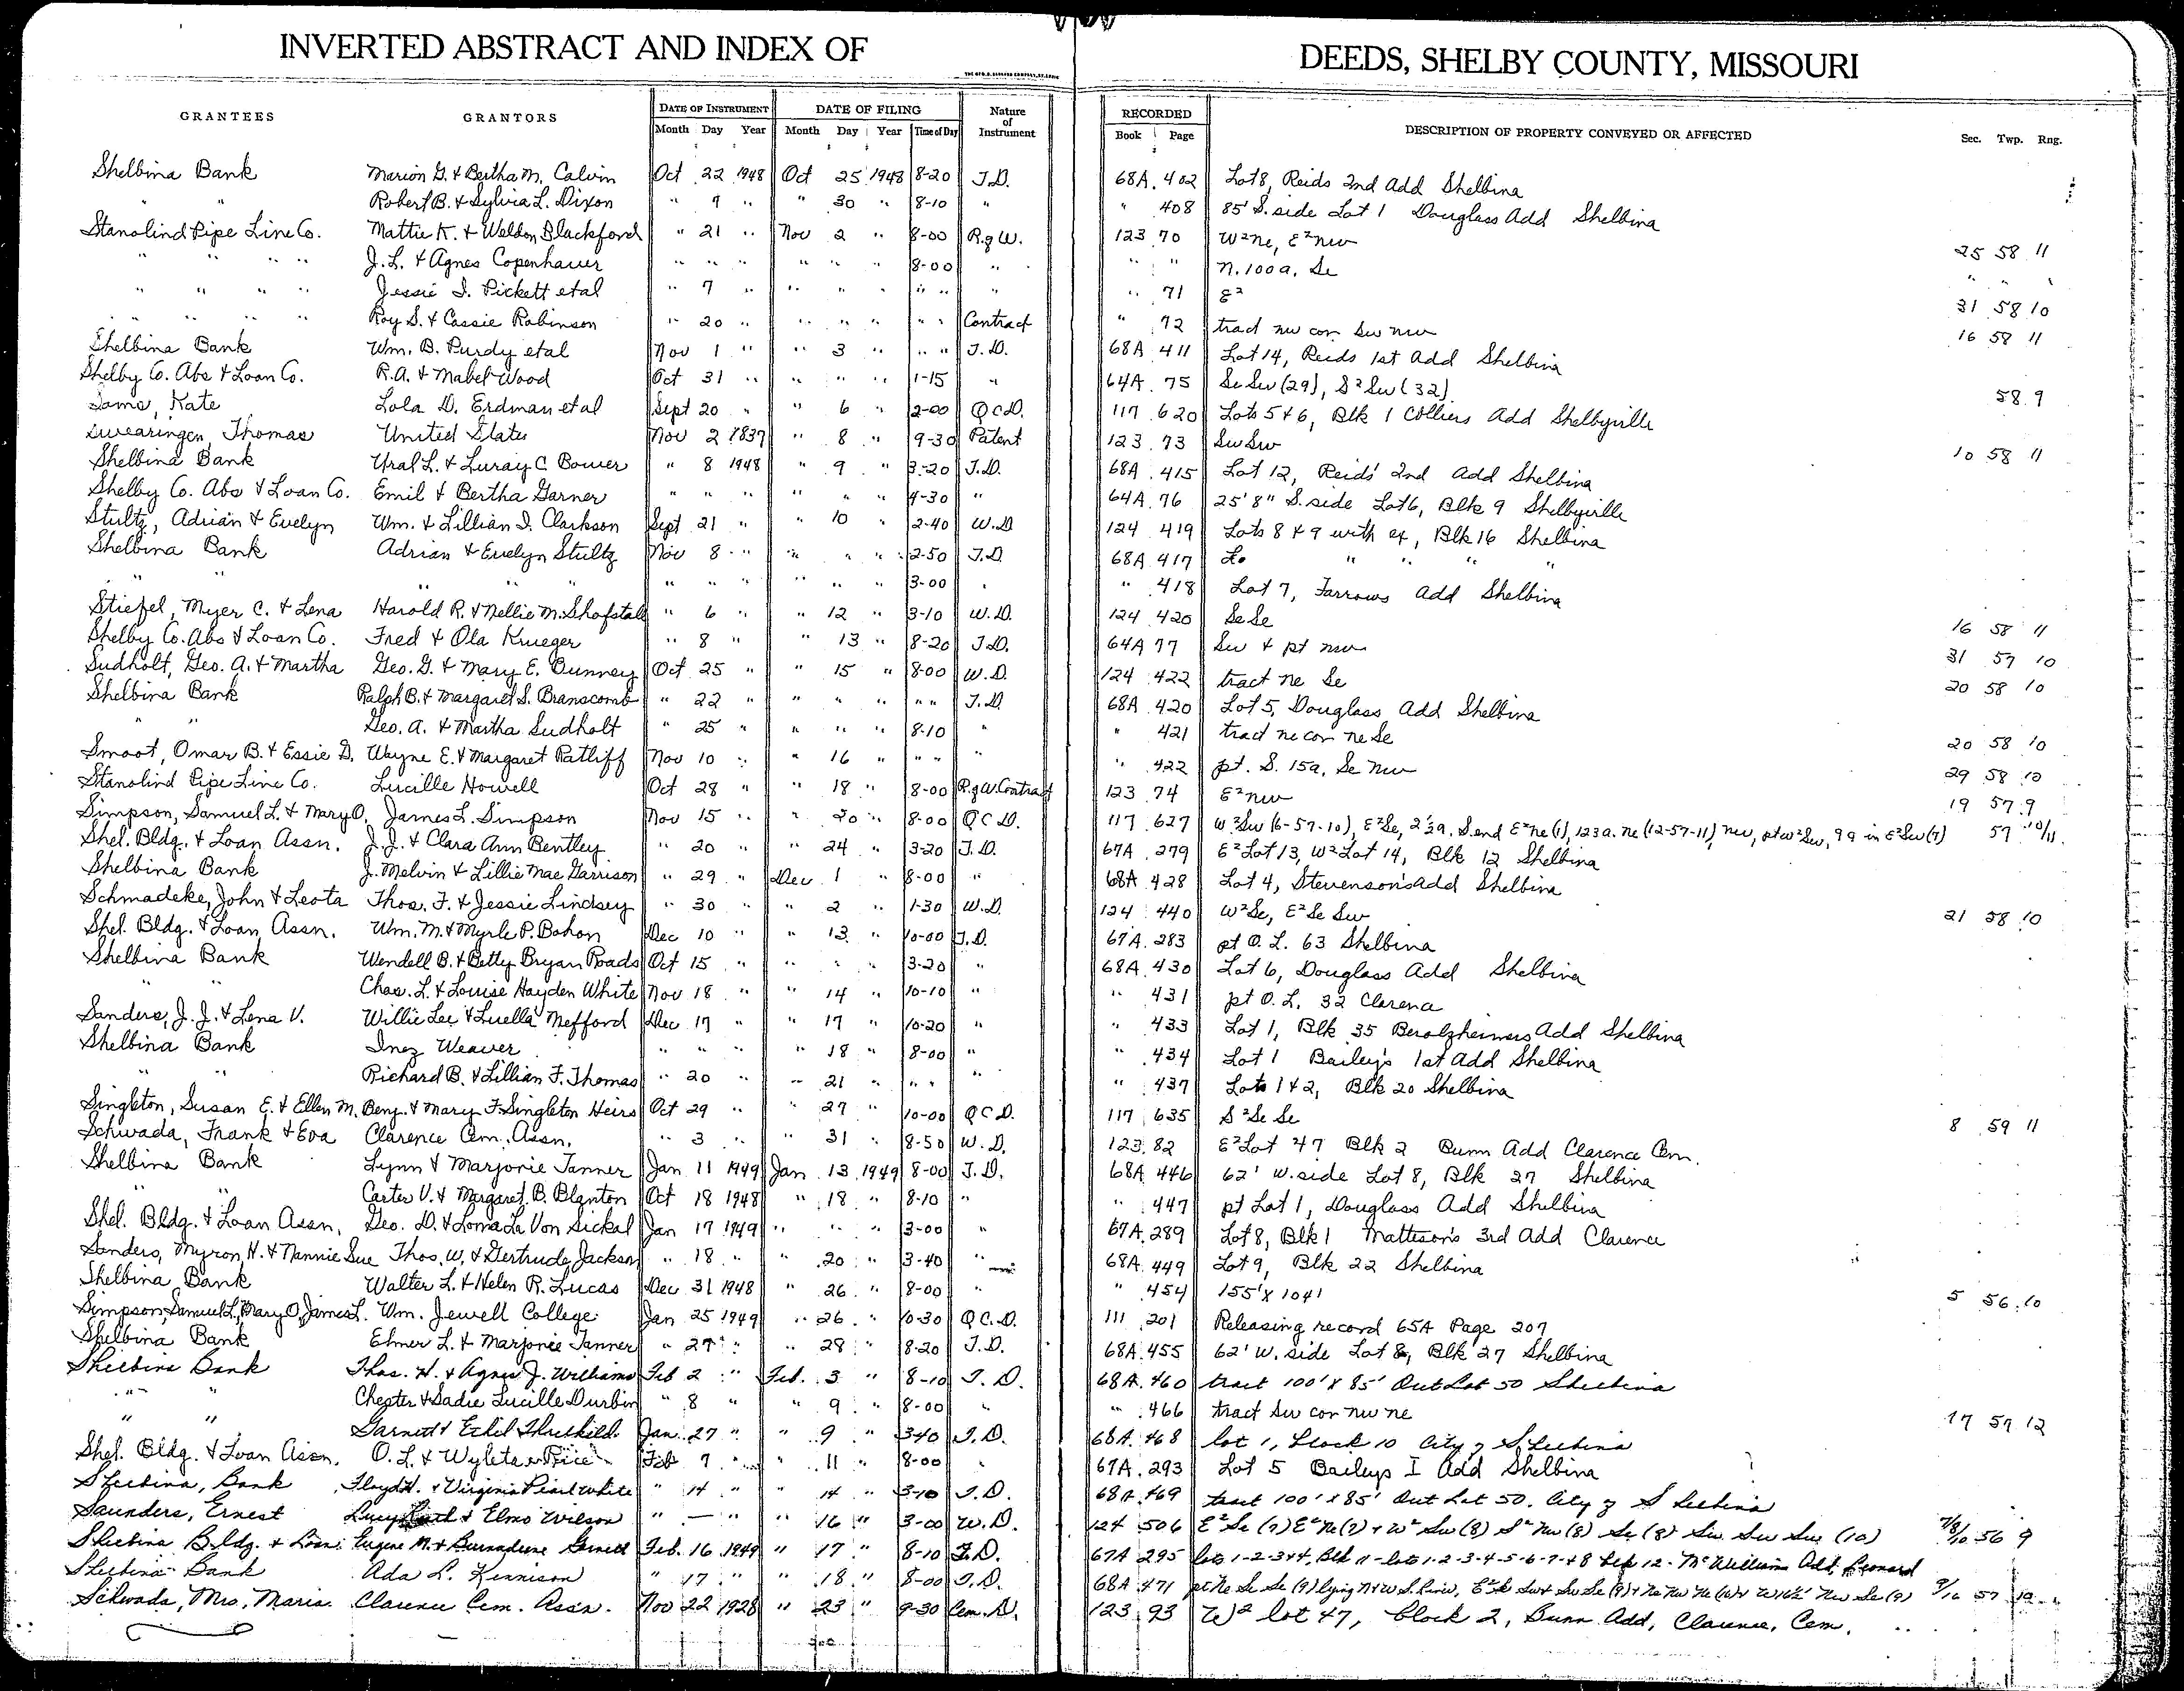 INVERTED ABSTRACT AND INDEX OF DEEDS, SHELBY COUNTY, MISSOURI
GRANTEES GRANTORS DATE OF INSTRUMENT DATE OF FILING Nature of Instrument RECORDED DESCRIPTION OF PROPERTY CONVEYED OR AFFECTED Sec. Twp. Rng.
Month Day Year Month Day Year Time of Day Book Page
Shelbina Bank Marion G. & Bertha M. Calvin Oct 22 1948 Oct 25 1948 8-20 T.D. 68A 402 Lot 8, Reids 2nd Add Shelbina
" " Robert B. & Sylvia L. Dixon " 9 " " 30 " 8-10 " " 408 85' S. side Lot 1 Douglass Add Shelbina
Stanolind Pipe Line Co. Mattie K. & Weldon Blackford " 21 " Nov 2 " 8-00 R.g W. 123 70 W² ne, E² nw 25 58 11
" " " " J. L. & Agnes Copenhaver " " " " " " 8-00 " " " N. 100a. Se " " "
" " " " Jessie I. Pickett etal " 7 " " " " " " " " 71 E² 31 58 10
" " " " Roy S. & Cassie Robinson " 20 " " " " " " Contract " 72 tract nw cor Sw nw 16 58 11
Shelbina Bank Wm. B. Purdy etal Nov 1 " " 3 " " " T.D. 68A 411 Lot 14, Reids 1st Add Shelbina
Shelby Co. Abs & Loan Co. R.A. & Mabel Wood Oct 31 " " " " 1-15 " 64A 75 Se Sw (29), S² Sw (32) 58 9
Sams, Kate Lola D. Erdman etal Sept 20 " " 6 " 2-00 QCD. 117 620 Lots 5 & 6, Blk 1 Colliers Add Shelbyville
Swearingen, Thomas United States Nov 2 1837 " 8 " 9-30 Patent 123 73 Sw Sw 10 58 11
Shelbina Bank Ural L. & Luray C. Bower " 8 1948 " 9 " 3-20 T.D. 68A 415 Lot 12, Reids' 2nd Add Shelbina
Shelby Co. Abs & Loan Co. Emil & Bertha Garner " " " " " " 4-30 " 64A 76 25' 8" S. side Lot 6, Blk 9 Shelbyville
Stultz, Adrian & Evelyn Wm. & Lillian I. Clarkson Sept 21 " " 10 " 2-40 W.D 124 419 Lots 8 & 9 with ex, Blk 16 Shelbina
Shelbina Bank Adrian & Evelyn Stultz Nov 8 " " " " 2-50 T.D. 68A 417 Do " " " "
" " " " " " " " " " " 3-00 " " 418 Lot 7, Farrows Add Shelbina
Stiefel, Myer C. & Lena Harold R. & Nellie M. Shofstall " 6 " " 12 " 3-10 W.D. 124 420 Se Se 16 58 11
Shelby Co. Abs & Loan Co. Fred & Ola Krueger " 8 " " 13 " 8-20 T.D. 64A 77 Sw & pt nw 31 57 10
Sudholt, Geo. A. & Martha Geo. G. & Mary E. Dunney Oct 25 " " 15 " 8-00 W.D. 124 422 tract ne Se 20 58 10
Shelbina Bank Ralph B. & Margaret S. Branscomb " 22 " " " " " " T.D. 68A 420 Lot 5, Douglass Add Shelbina
" " Geo. A. & Martha Sudholt " 25 " " " " 8-10 " " 421 tract ne cor ne Se 20 58 10
Smoot, Omar B. & Essie D. Wayne E. & Margaret Ratliff Nov 10 " " 16 " " " " " 422 pt. S. 15a. Se nw 29 58 10
Stanolind Pipe Line Co. Lucille Howell Oct 28 " " 18 " 8-00 R.g W. Contract 123 74 E² nw 19 57 9
Simpson, Samuel L. & Mary O. James L. Simpson Nov 15 " " 20 " 8-00 QCD. 117 627 W² Sw (6-57-10), E² Se, 2½a. S. end E² ne (1), 123a. ne (12-57-11), nw, pt W² Sw, 9a in E² Sw (7) 57 10/11
Shel. Bldg. & Loan Assn. J. J. & Clara Ann Bentley " 20 " " 24 " 3-20 T.D. 67A 279 E² Lot 13, W² Lot 14, Blk 12 Shelbina
Shelbina Bank J. Melvin & Lillie Mae Garrison " 29 " Dec 1 " 8-00 " 68A 428 Lot 4, Stevenson's Add Shelbina
Schmadeke, John & Leota Thos. F. & Jessie Lindsey " 30 " " 2 " 1-30 W.D. 124 440 W² Se, E² Se Sw 21 58 10
Shel. Bldg. & Loan Assn. Wm. M. & Myrle P. Bohon Dec 10 " " 13 " 10-00 T.D. 67A 283 pt O. L. 63 Shelbina
Shelbina Bank Wendell B. & Betty Bryan Roads Oct 15 " " " " 3-20 " 68A 430 Lot 6, Douglass Add Shelbina
" " Chas. L. & Louise Hayden White Nov 18 " " 14 " 10-10 " " 431 pt O. L. 32 Clarence
Sanders, J. J. & Lena V. Willie Lee & Luella Mefford Dec 17 " " 17 " 10-20 " " 433 Lot 1, Blk 35 Berolzheimers Add Shelbina
Shelbina Bank Inez Weaver " " " " 18 " 8-00 " " 434 Lot 1 Bailey's 1st Add Shelbina
" " Richard B. & Lillian F. Thomas " 20 " " 21 " " " " " 437 Lots 1 & 2, Blk 20 Shelbina
Singleton, Susan E. & Ellen M. Benj. & Mary F. Singleton Heirs Oct 29 " " 27 " 10-00 QCD. 117 635 S² Se Se 8 59 11
Schwada, Frank & Eva Clarence Cem. Assn. " 3 " " 31 " 8-50 W.D. 123 82 E² Lot 47 Blk 2 Bunn Add Clarence Cem.
Shelbina Bank Lynn & Marjorie Tanner Jan 11 1949 Jan 13 1949 8-00 T.D. 68A 446 62' W. side Lot 8, Blk 27 Shelbina
" " Carter V. & Margaret B. Blanton Oct 18 1948 " 18 " 8-10 " " 447 pt Lot 1, Douglass Add Shelbina
Shel. Bldg. & Loan Assn. Geo. D. & Lorna La Von Sickal Jan 17 1949 " " " 3-00 " 67A 289 Lot 8, Blk 1 Matteson's 3rd Add Clarence
Sanders, Myron H. & Nannie Sue Thos. W. & Gertrude Jackson " 18 " " 20 " 3-40 " 68A 449 Lot 9, Blk 22 Shelbina
Shelbina Bank Walter L. & Helen R. Lucas Dec 31 1948 " 26 " 8-00 " " 454 155' X 104' 5 56 10
Simpson, Samuel L., Mary O, James L. Wm. Jewell College Jan 25 1949 " 26 " 10-30 QC.D. 111 201 Releasing record 65A Page 207
Shelbina Bank Elmer L. & Marjorie Tanner " 27 " " 28 " 8-20 T.D. 68A 455 62' W. side Lot 8, Blk 27 Shelbina
Shelbina Bank Thos. H. & Agnes J. Williams Feb 2 " Feb. 3 " 8-10 T.D. 68A 460 tract 100' X 85' Out Lot 50 Shelbina
" " Chester & Sadie Lucille Durbin " 8 " " 9 " 8-00 " " 466 tract Sw cor nw ne 17 57 12
" " Garnett & Ethel Threlkeld Jan. 27 " " 9 " 3-40 T.D. 68A 468 lot 1, block 10 City of Shelbina
Shel. Bldg. & Loan Assn. O. L. & Wyleta Price Feb 7 " " 11 " 8-00 " 67A 293 Lot 5 Baileys I Add Shelbina
Shelbina, Bank Floyd H. & Virginia Pearl White " 14 " " 14 " 3-10 T.D. 68A 469 tract 100' X 85' Out Lot 50. City of Shelbina
Saunders, Ernest Lucy & Elmo Wilson " — " " 16 " 3-00 W.D. 124 506 E² Se (7) E² Ne (7) & W² Sw (8) S² Nw (8) Se (8) Sw Sw Sw (10) 7/8/10 56 9
Shelbina Bldg. & Loan Eugene M. & Bernadine Garnett Feb. 16 1949 " 17 " 8-10 T.D. 67A 295 lots 1-2-3 & 4, Blk 11 - lots 1-2-3-4-5-6-7 & 8 Blk 12 - McWilliams Add, Leonard
Shelbina Bank Ada L. Kennison " 17 " " 18 " 8-00 T.D. 68A 471 pt Ne Se Se (9) lying N & W S. River, Sw & Sw Se (9) Nw Se (9) 9/16 57 10
Schwada, Mrs. Maria Clarence Cem. Assn. Nov 22 1928 " 23 " 9-30 Cem. D. 123 93 W² lot 47, block 2, Bunn Add, Clarence, Cem.